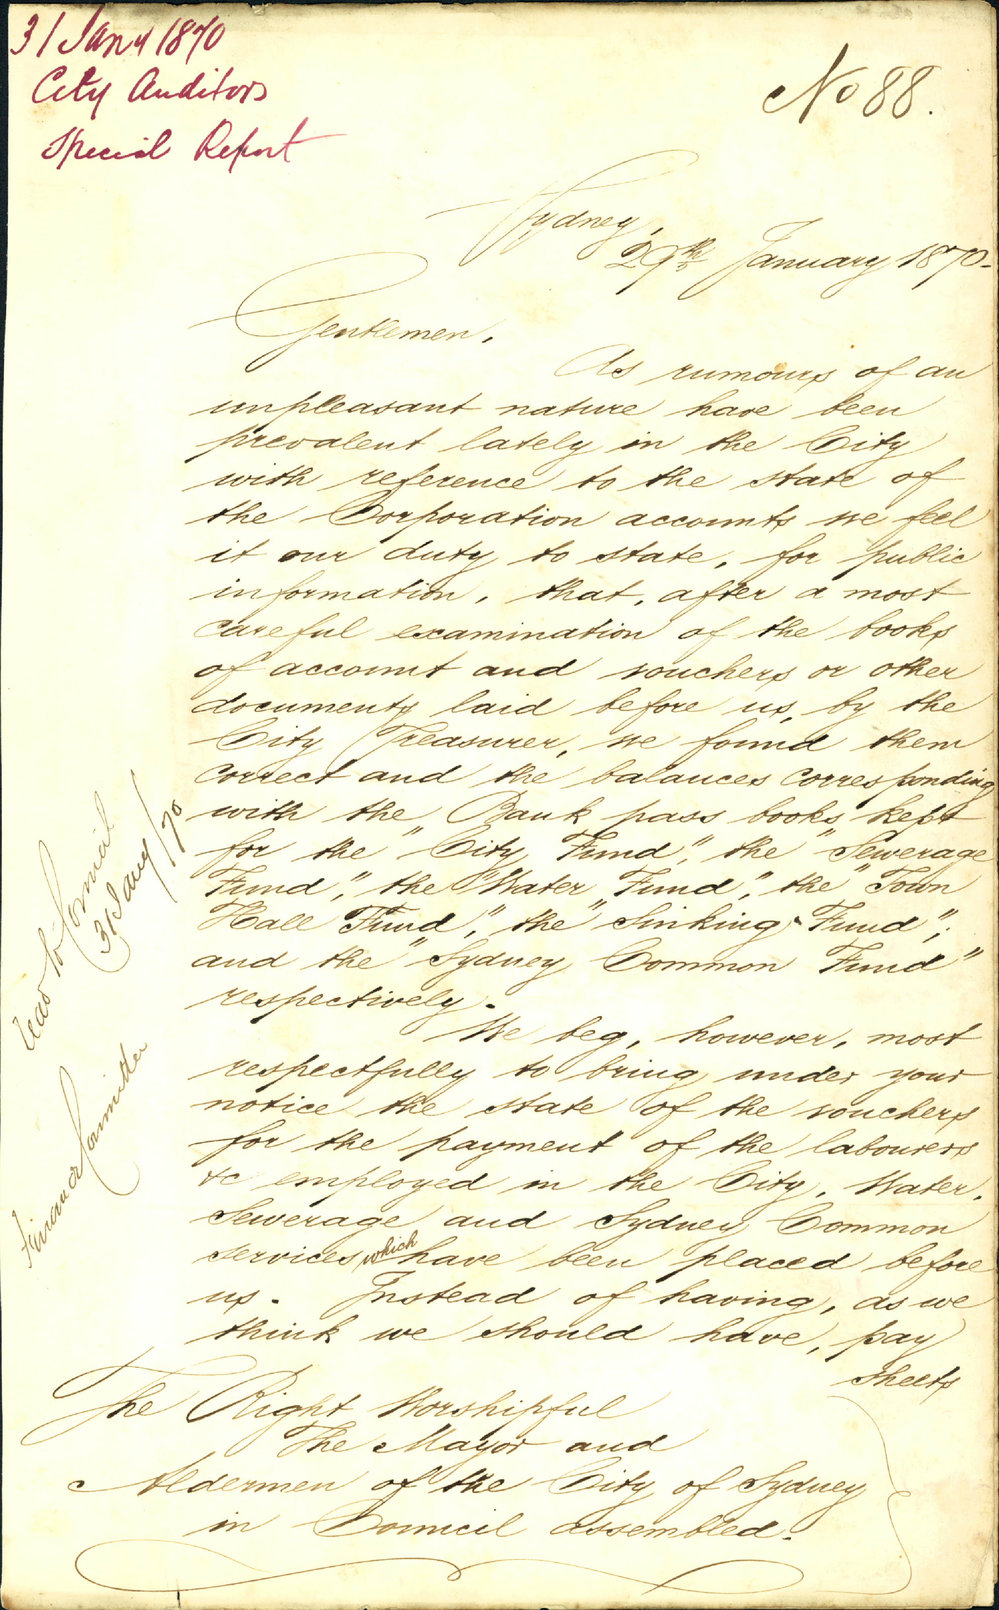 31 Jany 1870
City Auditors
Special Report
No 88.
Sydney,
29th January 1870.
Gentlemen,
As rumours of an
unpleasant nature have been
prevalent lately in the City
with reference to the state of
the Corporation accounts we feel
it our duty to state, for public
information, that, after a most
careful examination of the books
of account and vouchers or other
documents laid before us, by the
City Treasurer, we found them
correct and the balances corresponding
with the Bank pass books kept
for the "City Fund", the "Sewerage
Fund", the "Water Fund", the "Town
Hall Fund", the "Sinking Fund",
and the "Sydney Common Fund"
respectively.
We beg, however, most
respectfully to bring under your
notice the state of the vouchers
for the payment of the labourers
&c employed in the City, Water,
Sewerage and Sydney Common
services which have been placed before
us. Instead of having, as we
think we should have, pay
sheets
The Right Worshipful
The Mayor and
Aldermen of the City of Sydney
in Council assembled.
Read to Council
31 Jany/70
Finance Committee